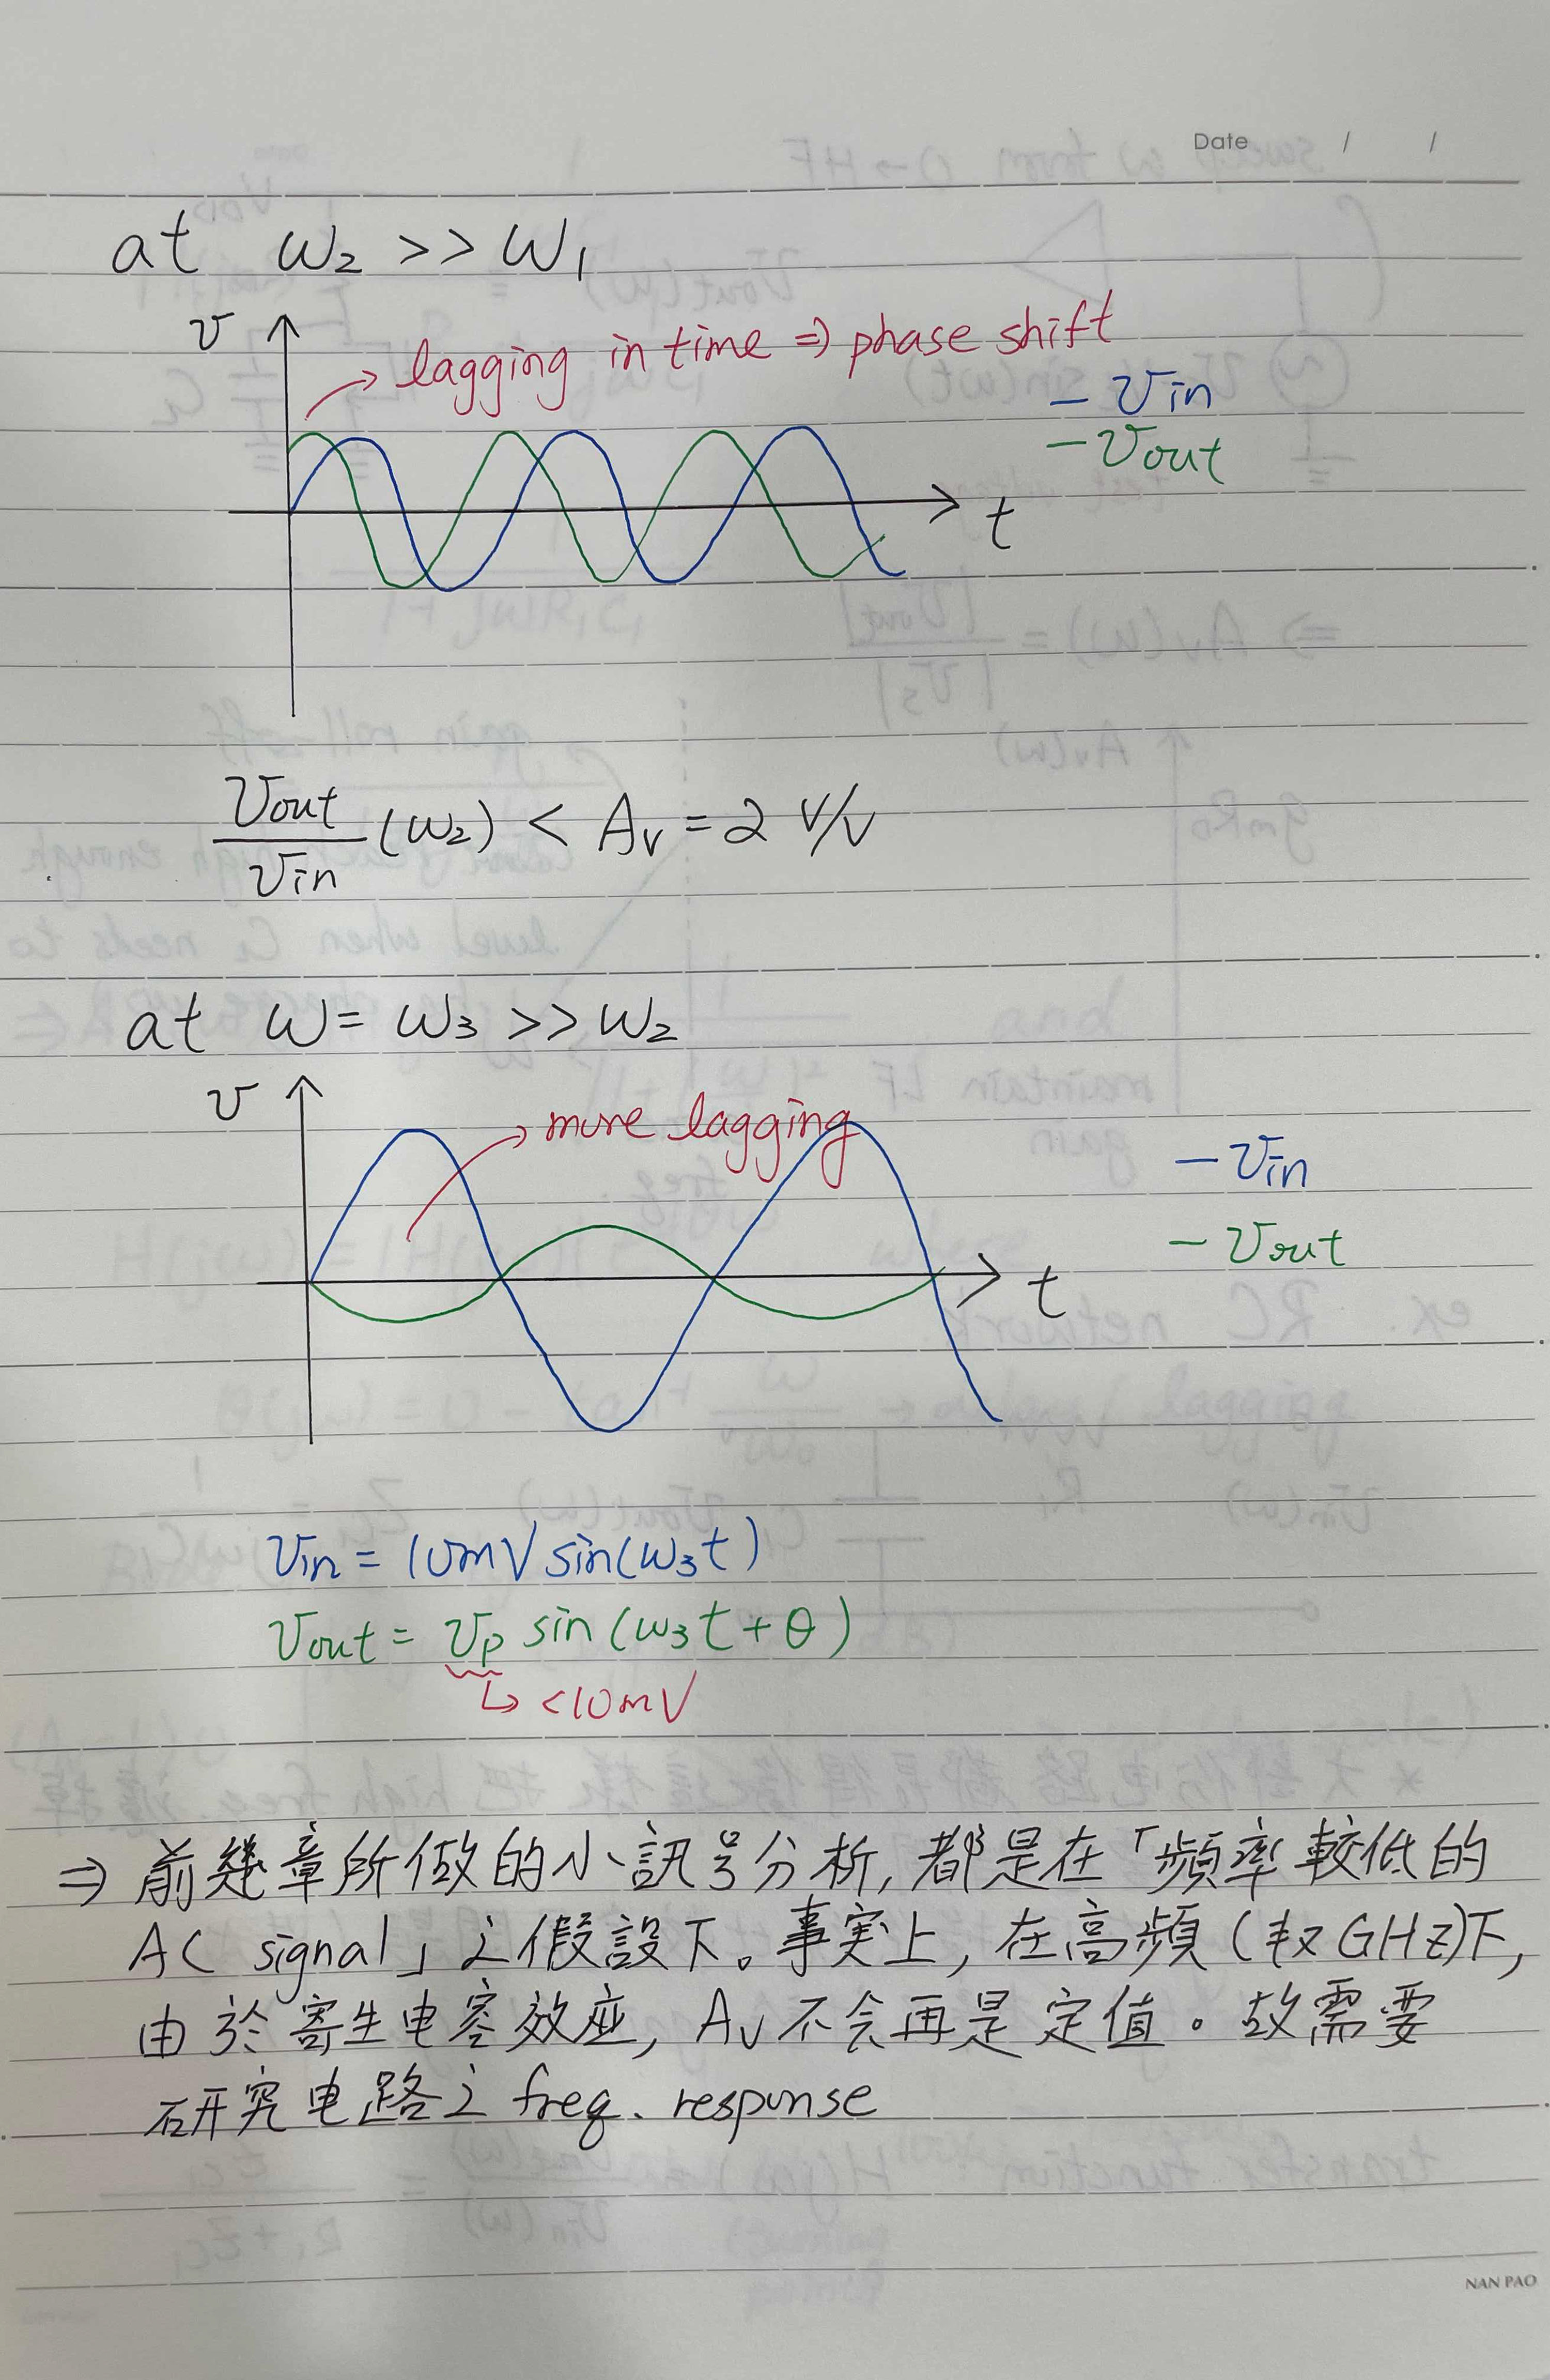 Date / /
at ω₂ >> ω₁
v
lagging in time ⇒ phase shift
— vin
— vout
t
vout/vin (ω₂) < Av = 2 V/V
at ω = ω₃ >> ω₂
v
more lagging
— vin
— vout
t
vin = 10mV sin(ω₃t)
vout = vp sin(ω₃t + θ)
↳ <10mV
⇒ 前幾章所做的小訊号分析, 都是在「頻率較低的
AC signal」之假設下。事実上, 在高頻 (数GHz)下,
由於寄生电容效应, Av 不会再是定值。故需要
研究电路之 freq. response
NAN PAO